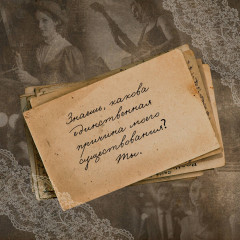 Знаешь, какова
единственная
причина моего
существования?
Ты.